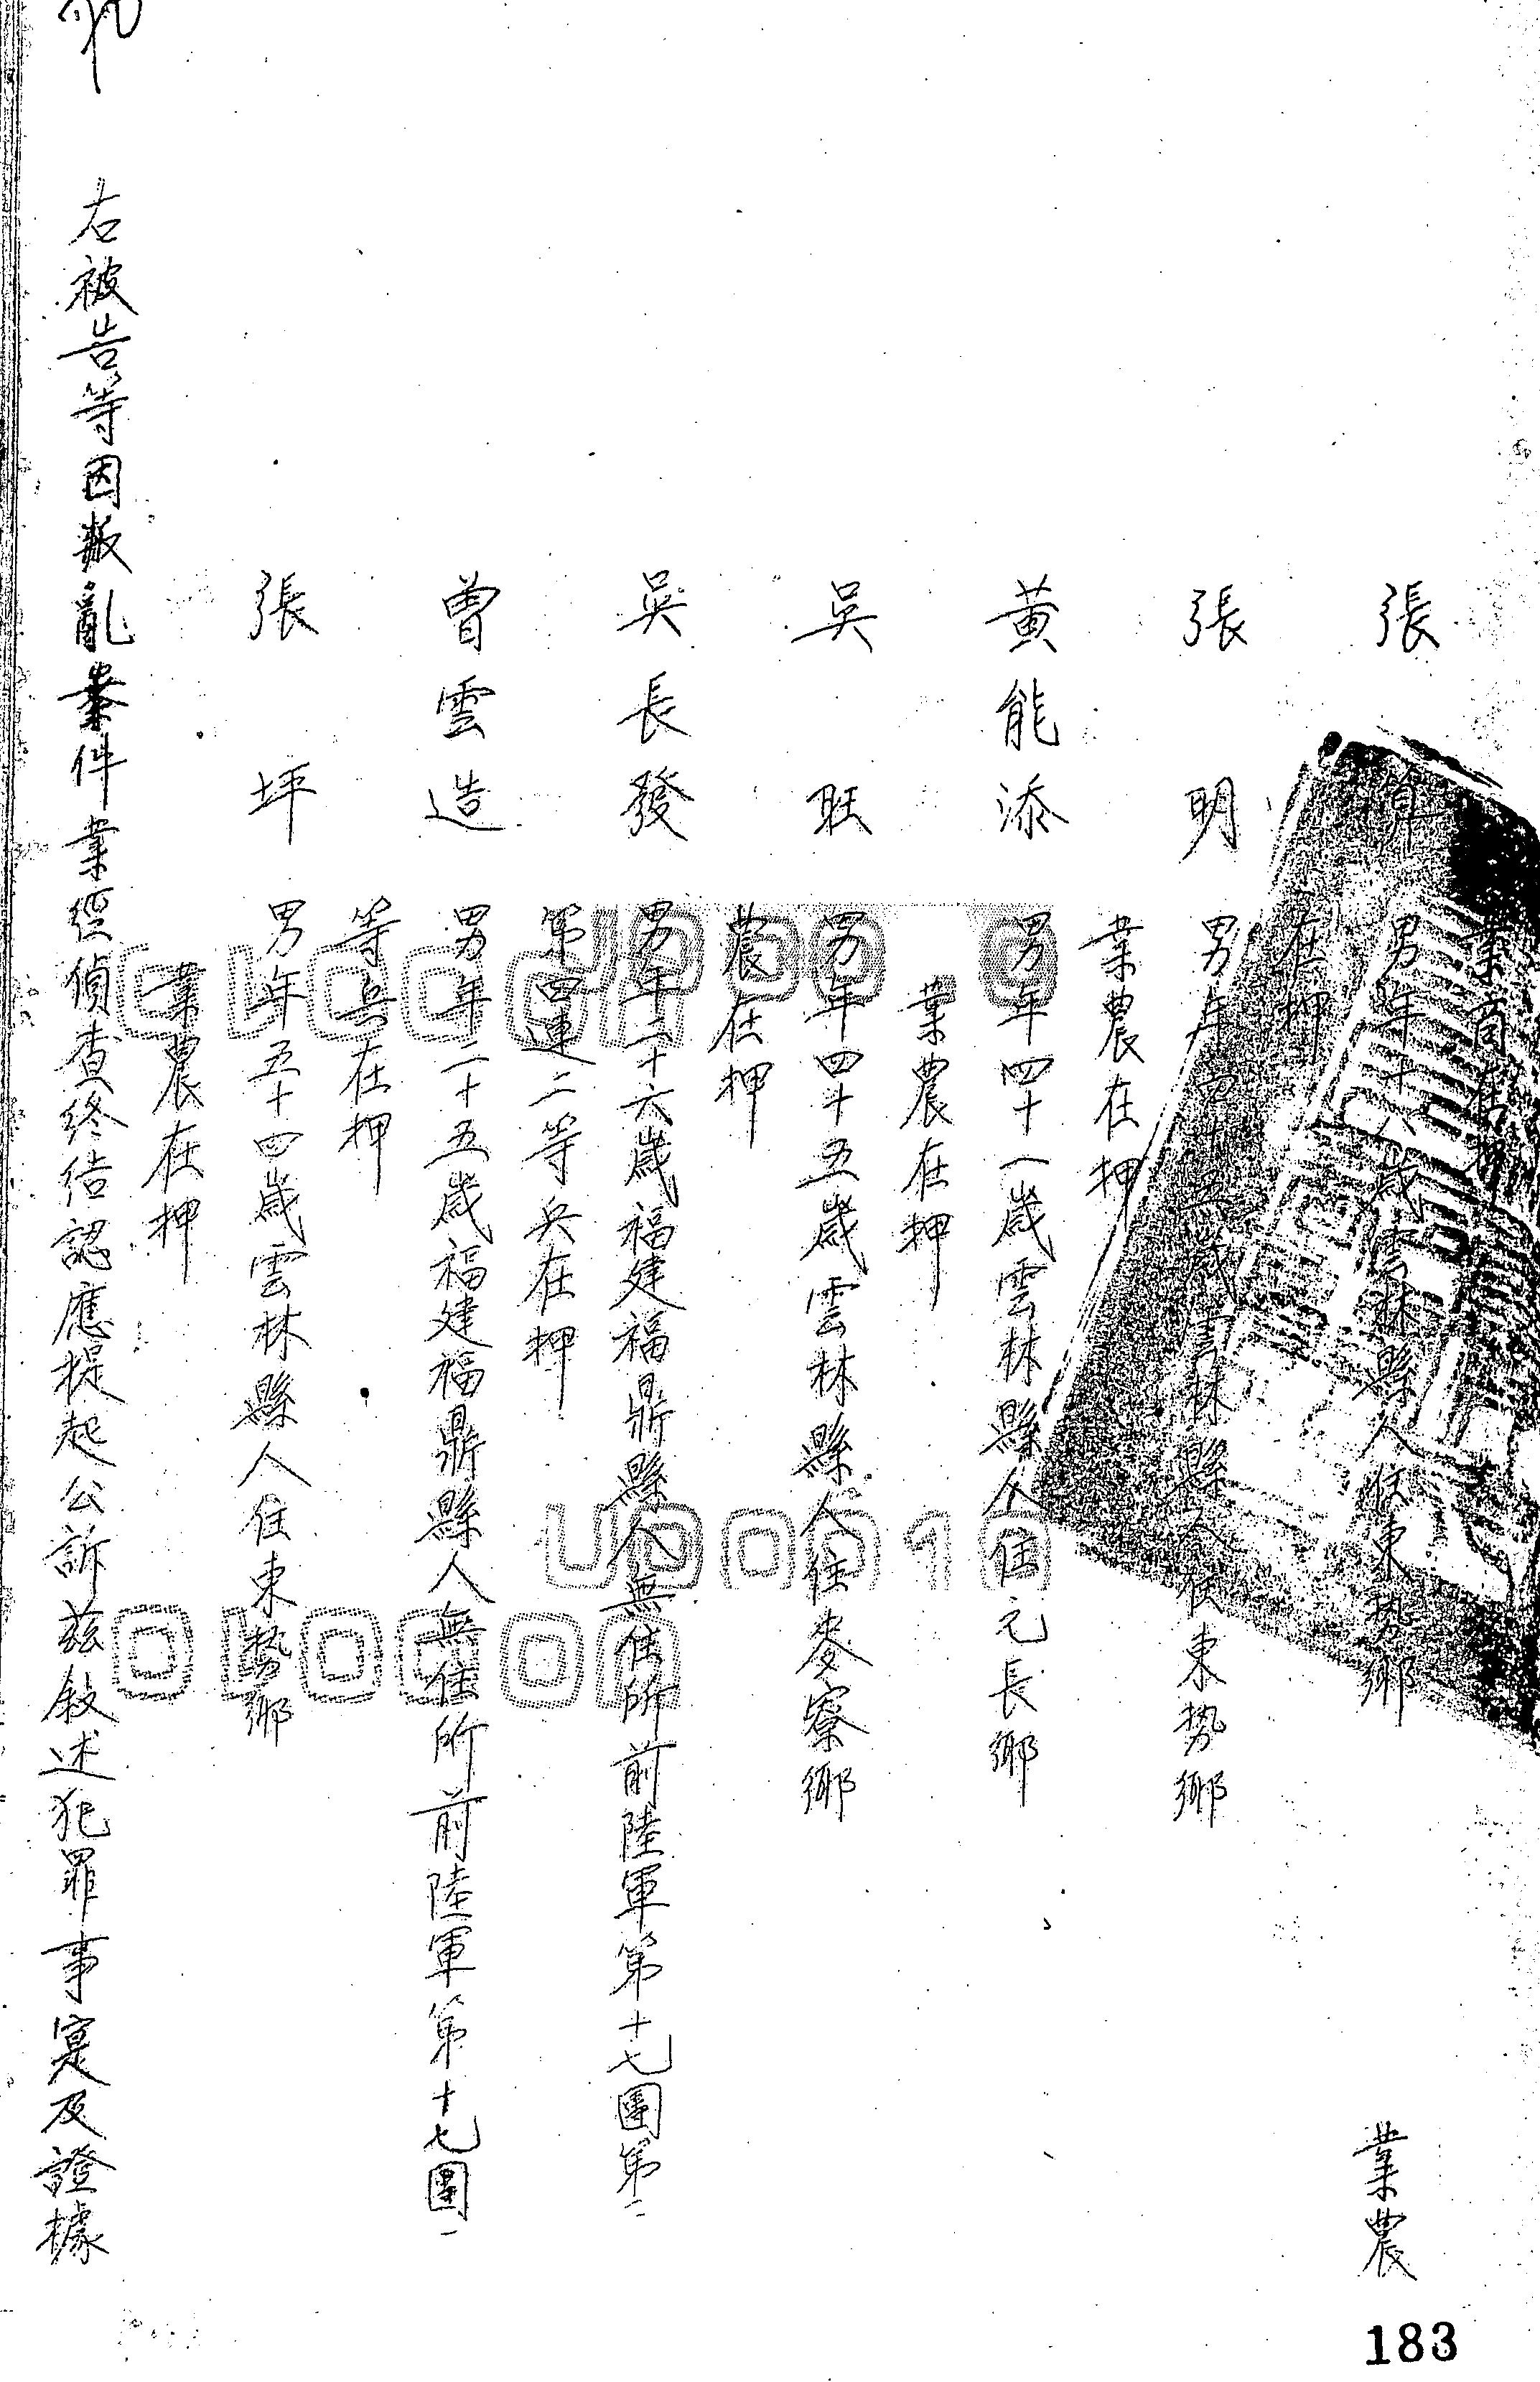 業商在押
張 男年十八歲雲林縣人住東勢鄉 業農
在押
張明 男年四十五歲雲林縣人住東勢鄉
業農在押
黃能添 男年四十一歲雲林縣人住元長鄉
業農在押
吳旺 男年四十五歲雲林縣人住麥寮鄉
農在押
吳長發 男年二十六歲福建福鼎縣人無住所前陸軍第十七團第二
第四連二等兵在押
曾雲造 男年二十五歲福建福鼎縣人無住所前陸軍第十七團一
等兵在押
張坪 男年五十四歲雲林縣人住東勢鄉
業農在押
右被告等因叛亂案件業經偵查終結認應提起公訴茲敍述犯罪事寔及證據
183